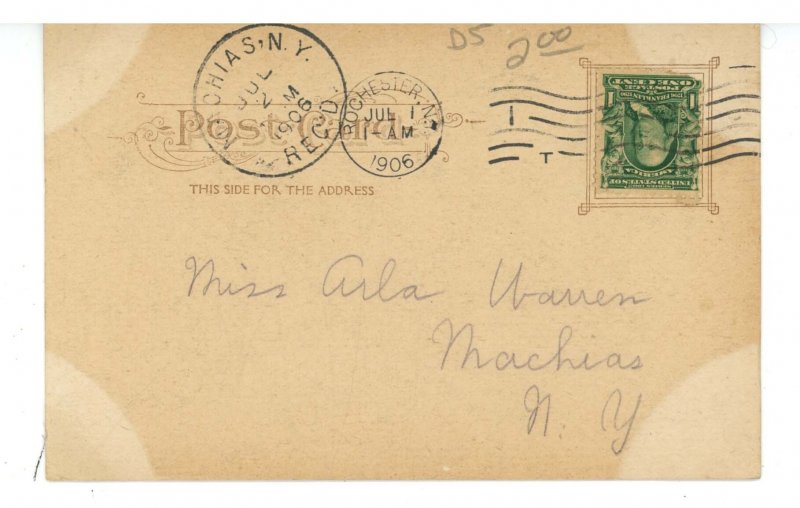 D5 2.00
MACHIAS, N.Y.
JUL
2
M
1906
REC'D.
ROCHESTER, N.Y.
JUL 1
1-AM
1906
T
Post Card
THIS SIDE FOR THE ADDRESS
SERIES 1902
UNITED STATES OF
AMERICA
1706 FRANKLIN 1790
1 1
POSTAGE
ONE CENT
Miss Arla Warren
Machias
N. Y